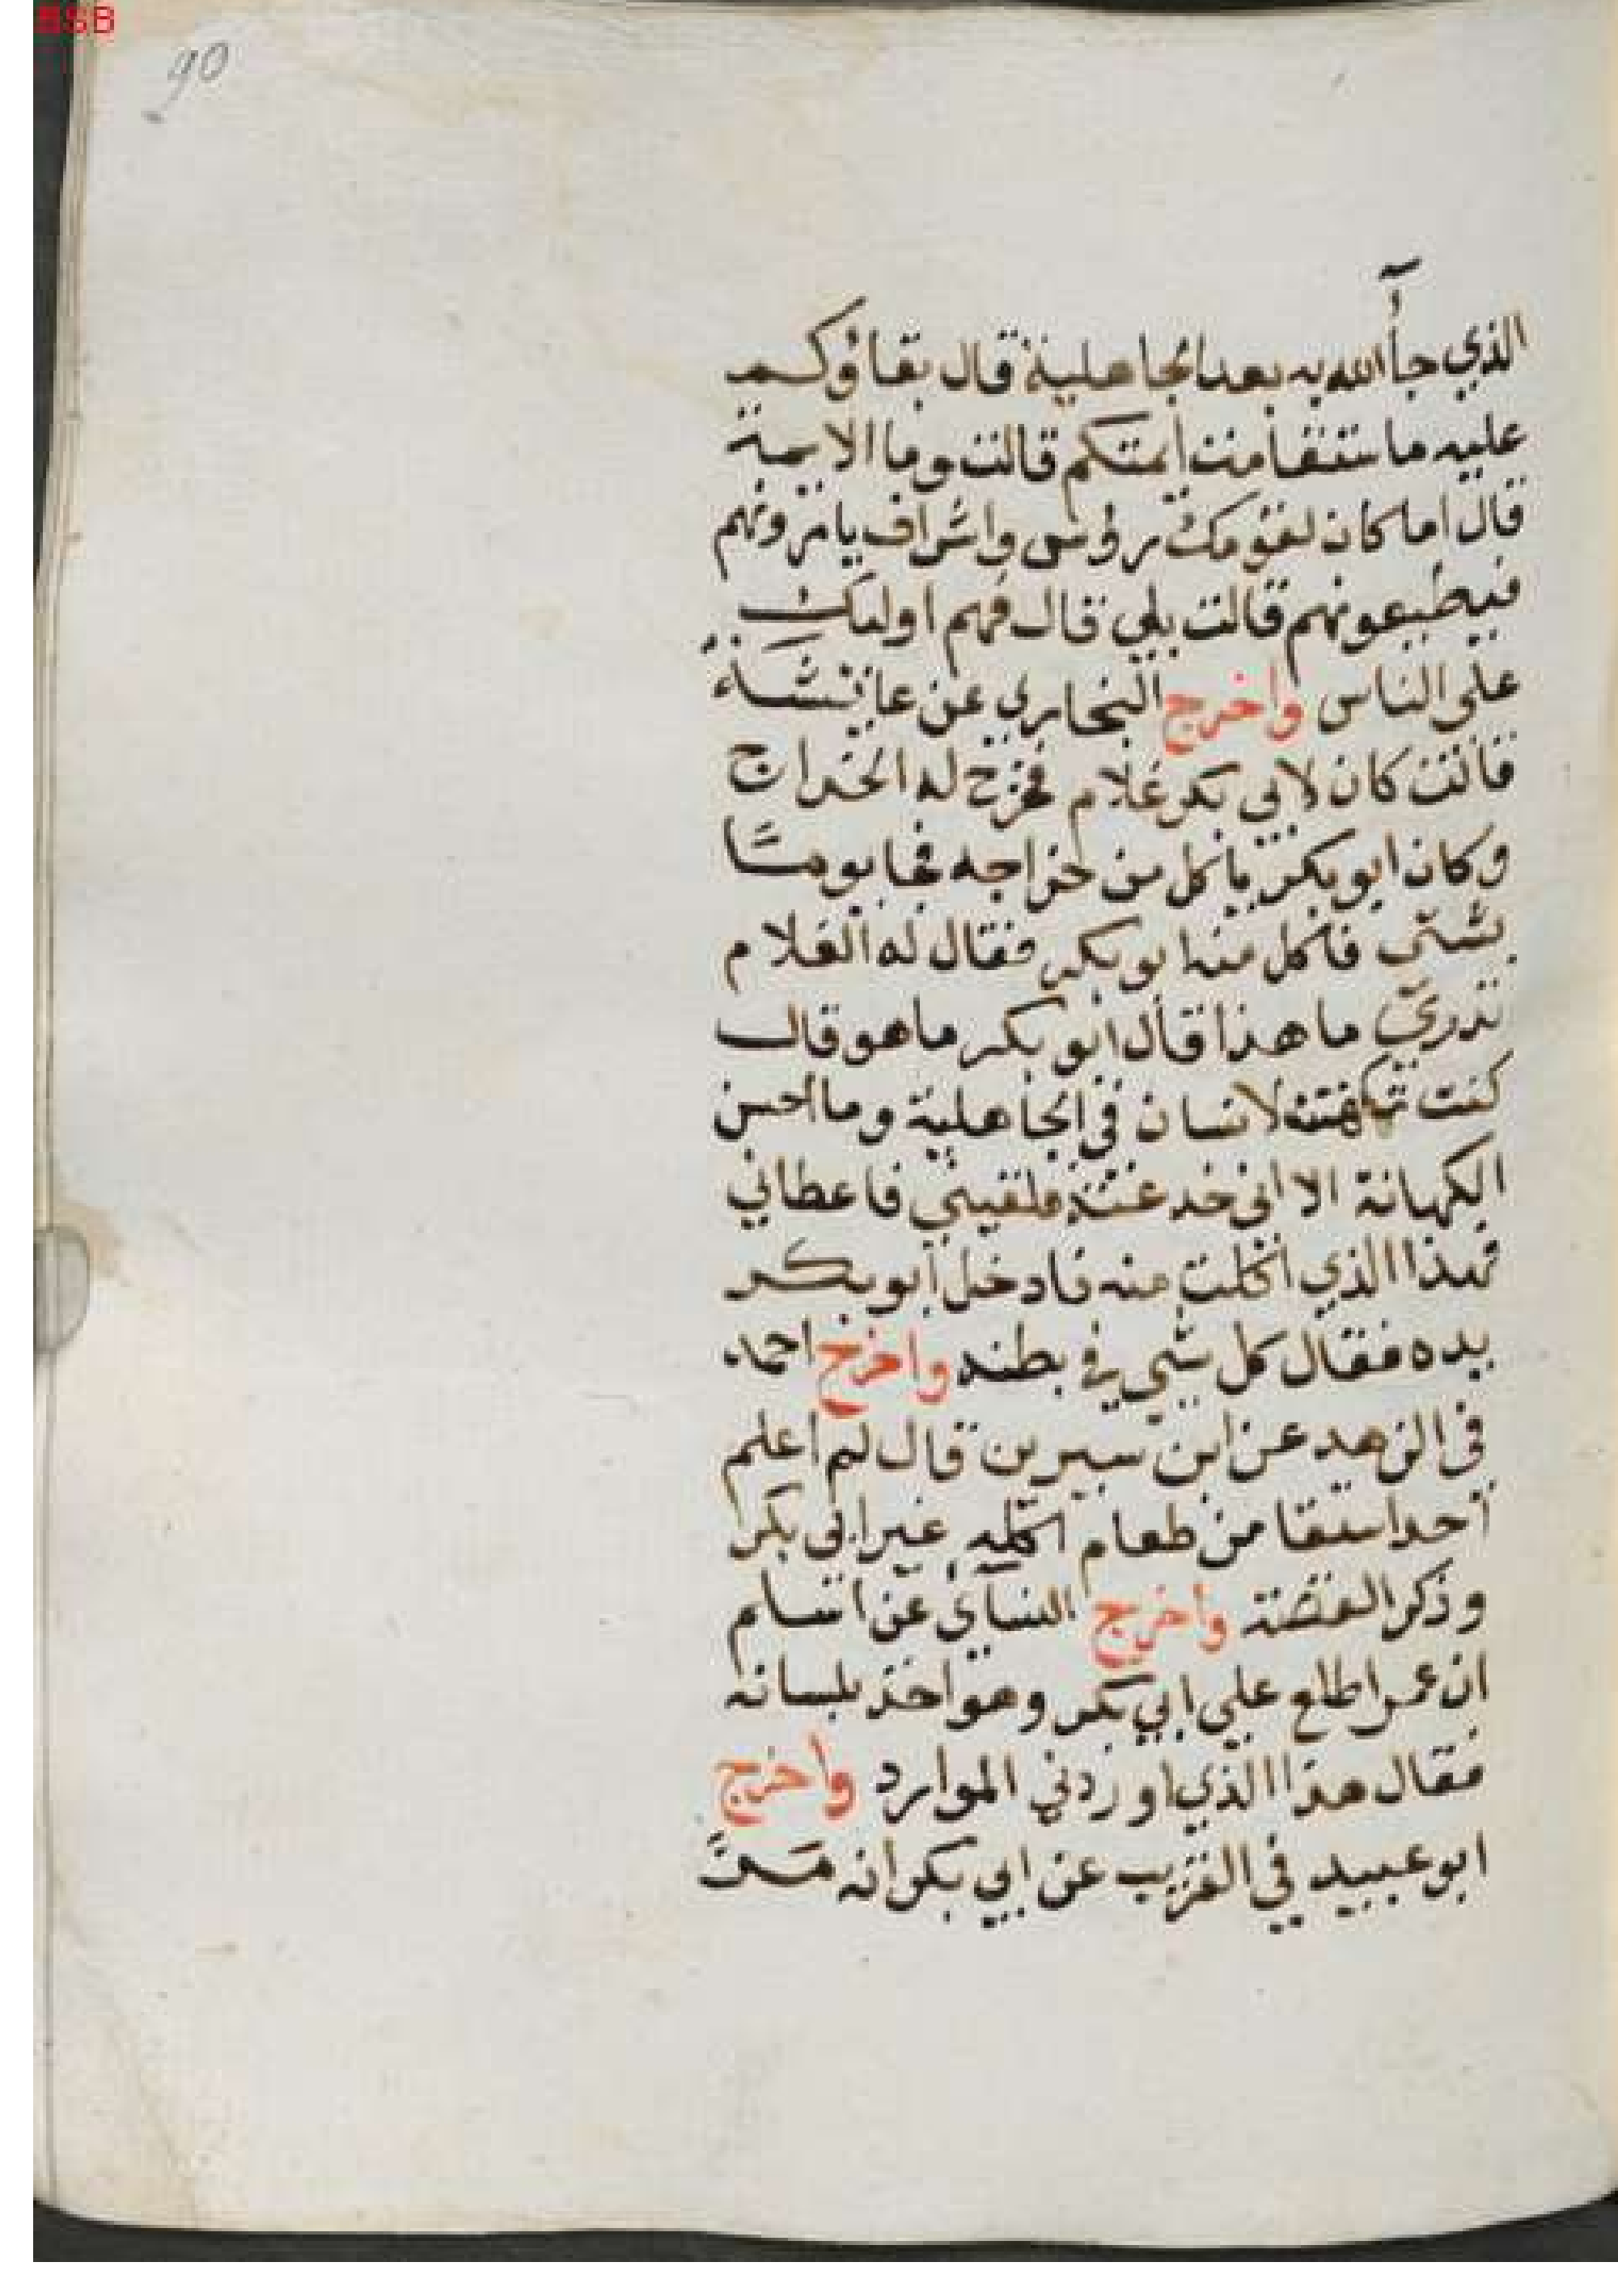 BSB
90
الذي جآء الله به بعد الجاهلية قال بقاؤكم
عليه ما ستقامت ايمتكم قالت وما الايمة
قال اما كان لقومك رؤس واشراف يامرونهم
فيطيعونهم قالت بلي قال فهم اوليك
على الناس واخرج البخاري عن عائشة
قالت كان لابي بكر غلام يخرج له الخراج
وكان ابو بكر ياكل من خراجه فجا يوما
بشي فاكل منه ابو بكر فقال له الغلام
تدري ما هذا قال ابو بكر ما هو قال
كنت تكهنت لانسان في الجاهلية وما احسن
الكهانة الا اني خدعته فلقيني فاعطاني
فهذا الذي اكلت منه فادخل ابو بكر
يده فقال كل شي في بطنه واخرج احمد
في الزهد عن ابن سيرين قال لم اعلم
احدا ستقا من طعام اكله غير ابي بكر
وذكر القصة واخرج النسآي عن اسلم
ان عمر اطلع علي ابي بكر وهو اخذ بلسانه
فقال هذا الذي اوردني الموارد واخرج
ابو عبيد في الغريب عن ابي بكر انه مر